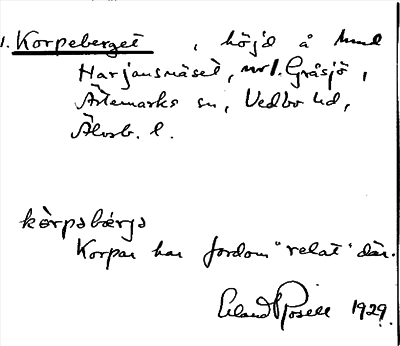 1. Korpeberget, höjd å
Harjansnäset, nv I. Gråsjö,
Ärtemarks sn, Vedbo hd,
Älvsb. l.
kòrpəbǽrjə
Korpar har fordom "relat" där.
Erland Rosell 1929.